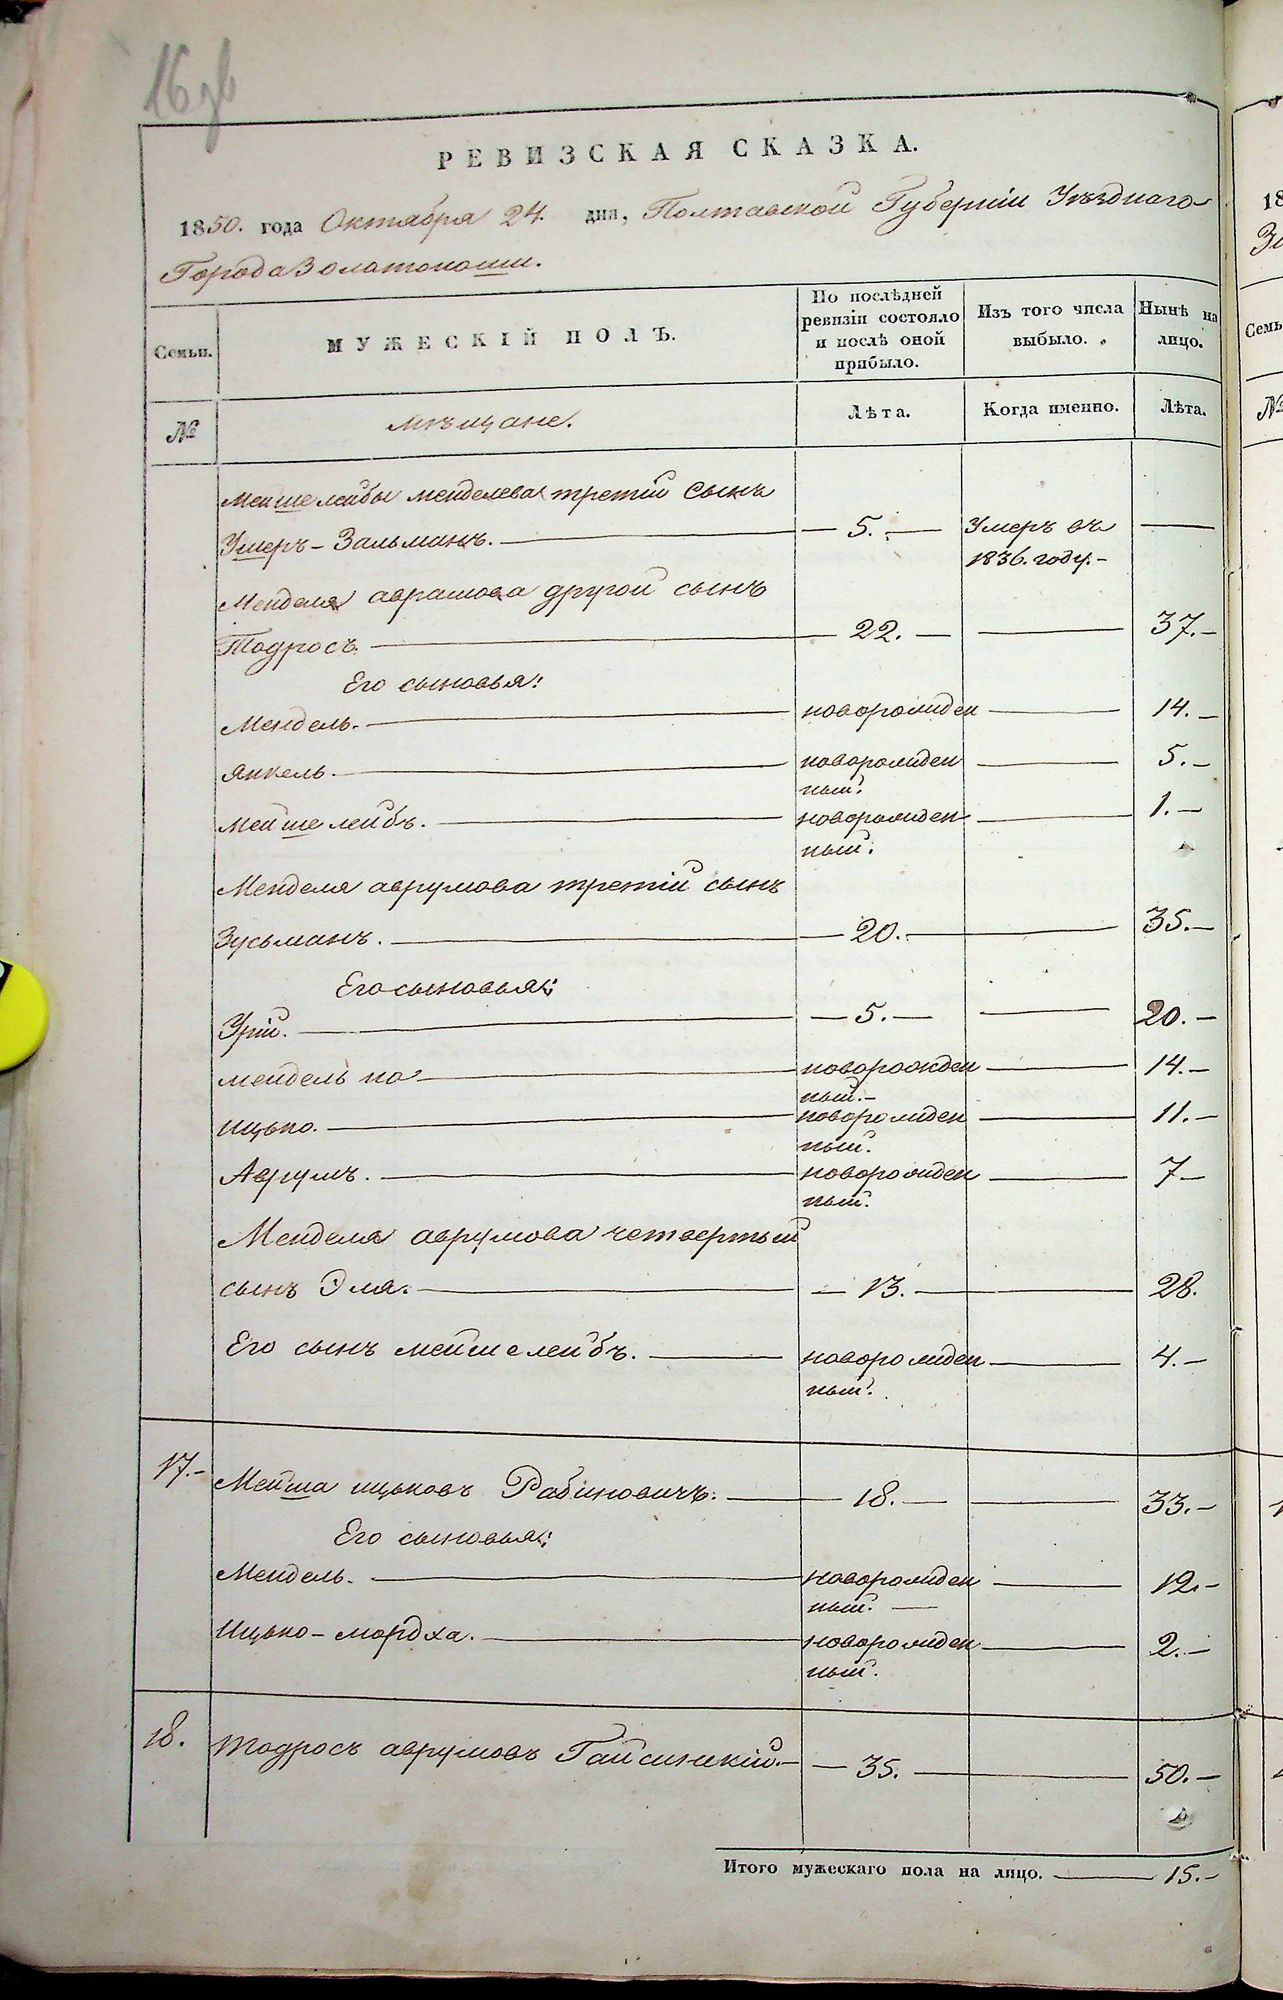 16 об
РЕВИЗСКАЯ СКАЗКА.
1850. года Октября 24. дня, Полтавской Губерніи Уѣзднаго
Города Золотоноши.
Семьи. МУЖЕСКІЙ ПОЛЪ. По послѣдней ревизіи состояло и послѣ оной прибыло. Изъ того числа выбыло. Нынѣ на лицо.
№ мѣщане. Лѣта. Когда именно. Лѣта.
Мейше лейбы менделева третій сынъ
Умеръ - Зальманъ. 5. Умеръ въ
1836. году.
Менделя аврамова другой сынъ
Тодросъ. 22. 37.
Его сыновья:
Мендель. новорожден 14.
Янкель новорожден 5.
ный.
Мейше лейбъ. новорожден 1.
ный.
Менделя аврумова третій сынъ
Зусьманъ. 20. 35.
Его сыновья:
Урій. 5. 20.
мендель но новорожден 14.
ный.
ицько. новорожден 11.
ный.
Аврумъ. новорожден 7
ный.
Менделя аврумова четвертый
сынъ Эля. 13. 28.
Его сынъ мейше лейбъ. новорожден 4.
ный.
17. Мейша ицьковъ Рабиновичъ. 18. 33.
Его сыновья:
Мендель. новорожден 12
ный.
Ицько - мордха. новорожден 2.
ный.
18. Тодросъ аврумовъ Гайсинскій. 35. 50.
Итого мужескаго пола на лицо. 15.